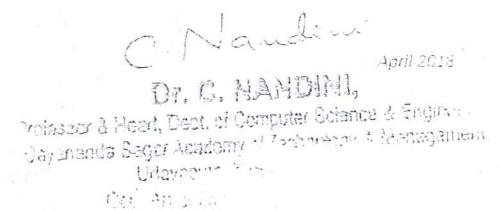 C. Nandini
April 2018
Dr. C. NANDINI,
Professor & Head, Dept. of Computer Science &
Dayananda Sagar Academy of Technology & Management